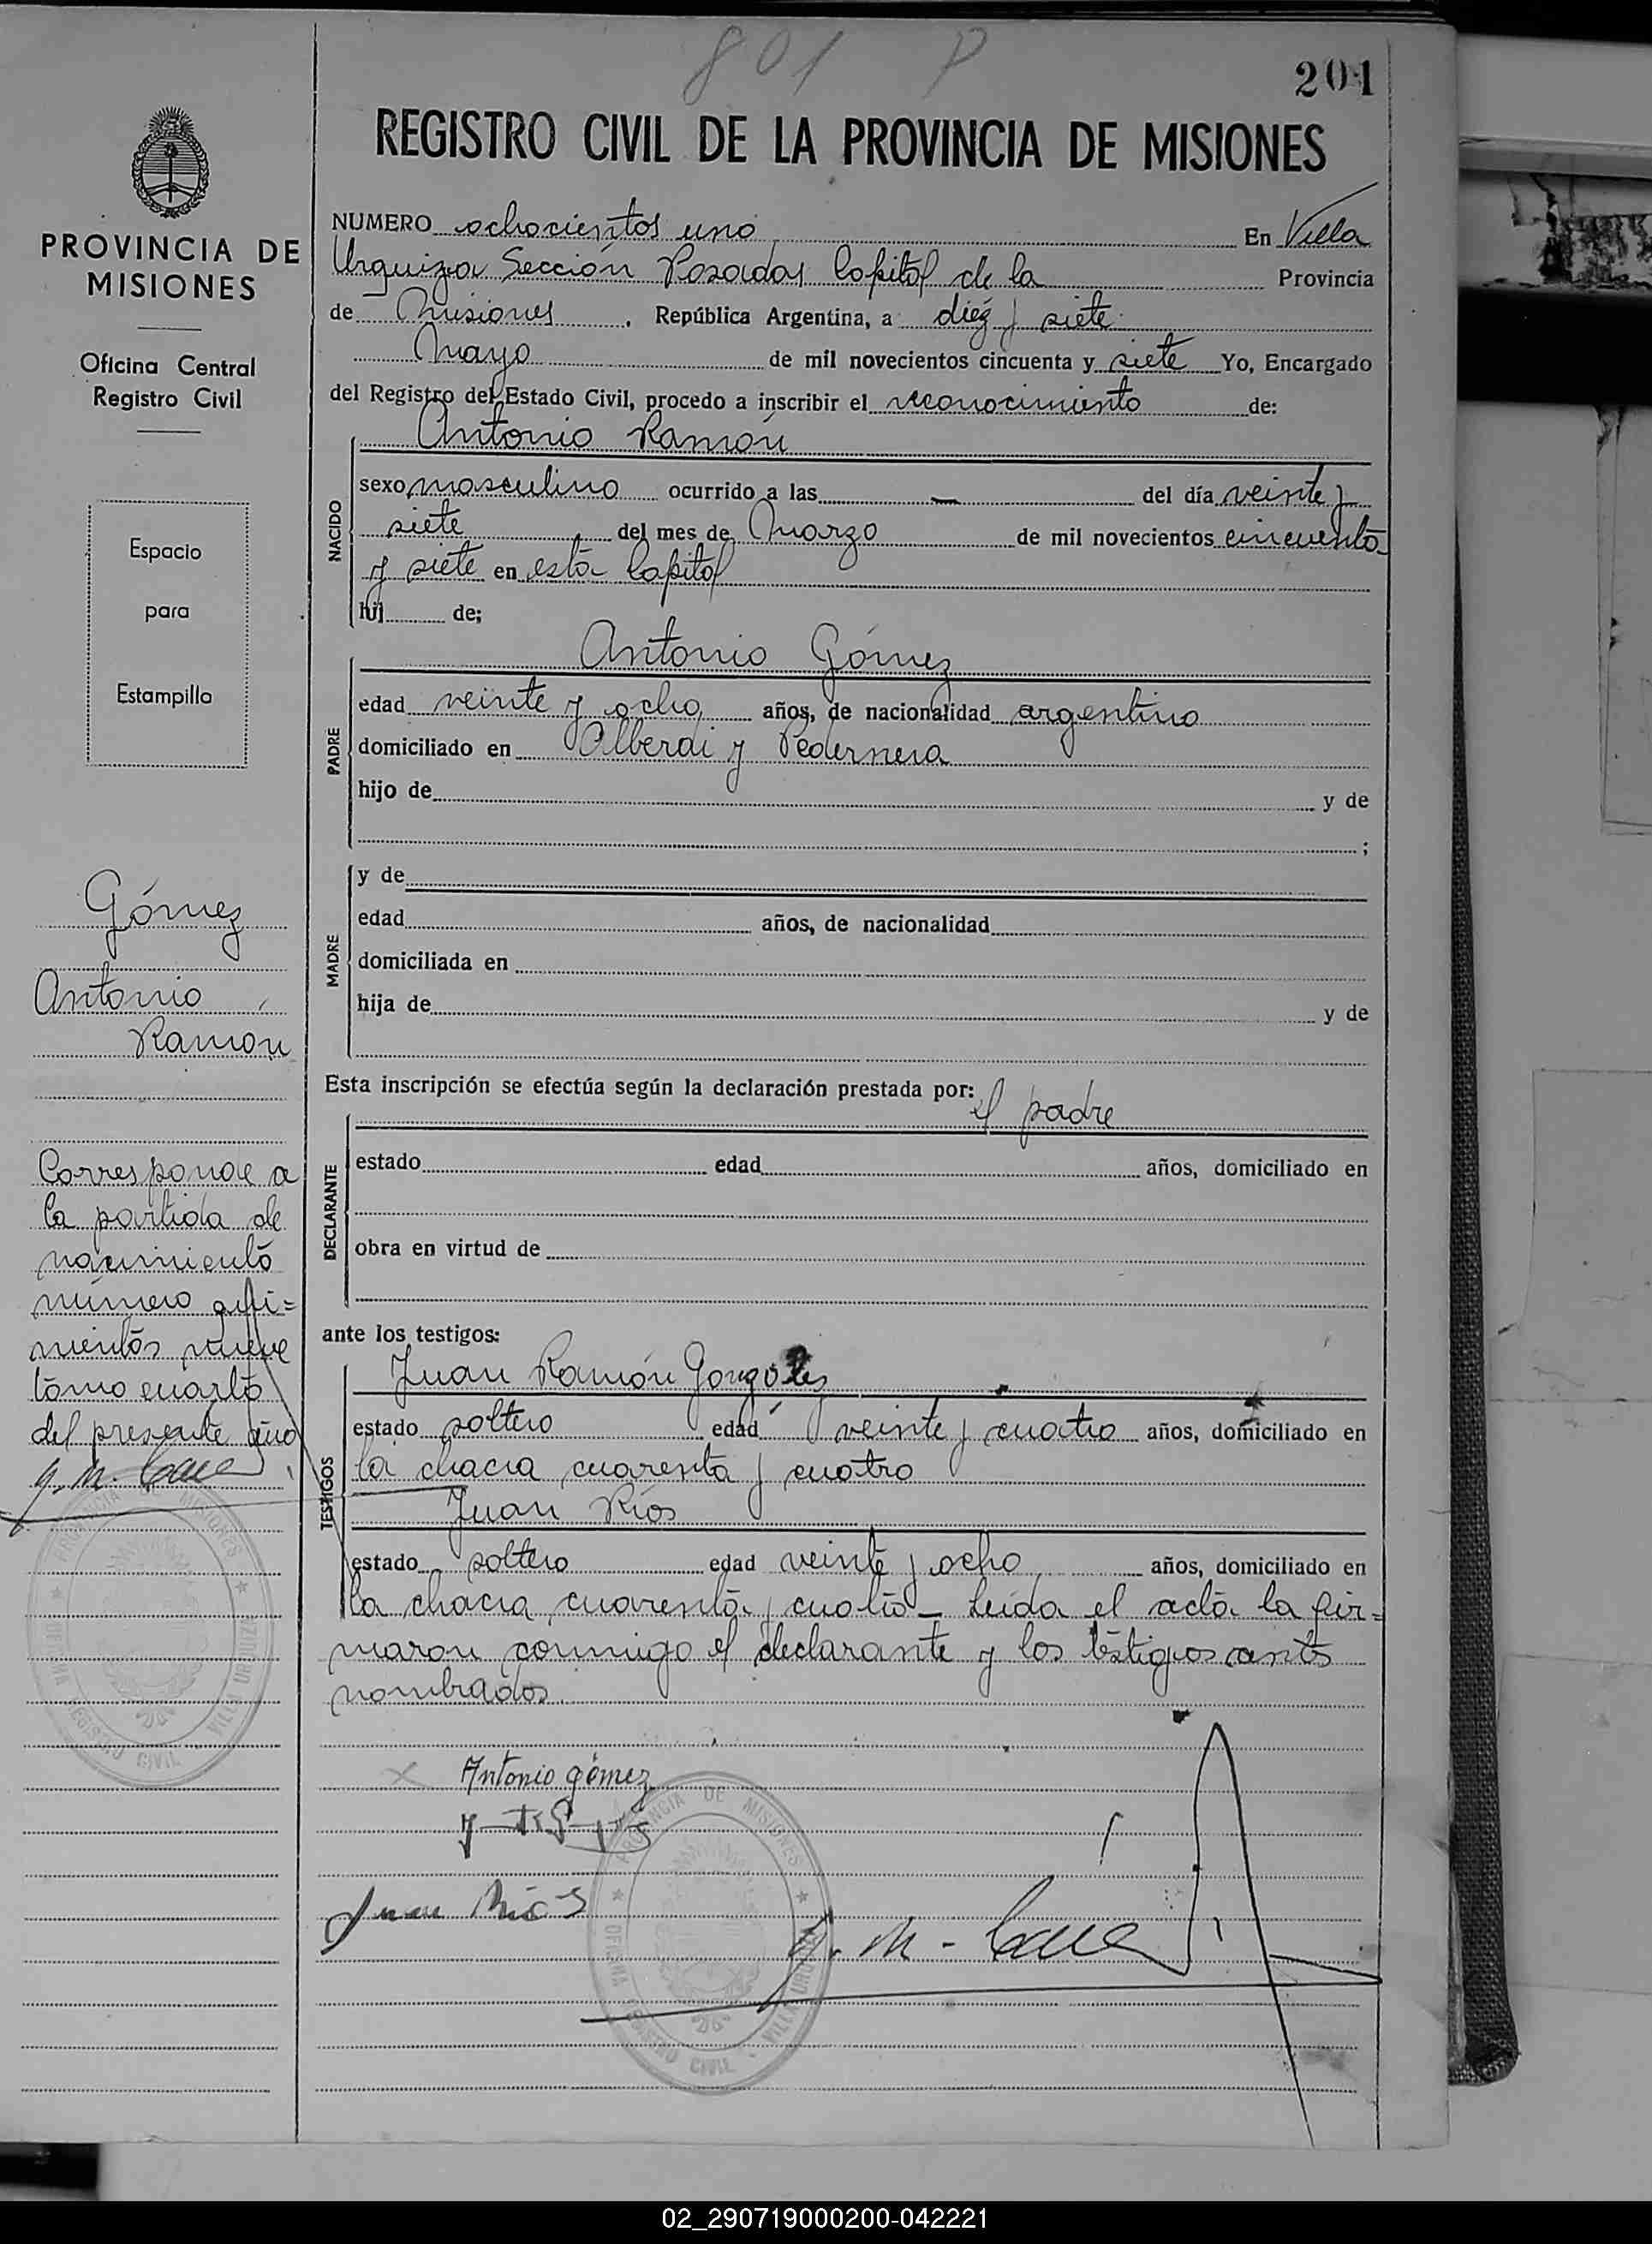 801 P
201
REGISTRO CIVIL DE LA PROVINCIA DE MISIONES
PROVINCIA DE
MISIONES
Oficina Central
Registro Civil
Espacio
para
Estampilla
Gómez
Antonio
Ramón
Corresponde a
la partida de
nacimiento
número quini=
nientos nueve
tomo cuarto
del presente año
NUMERO ochocientos uno En Villa
Urquiza Sección Posadas Capital de la Provincia
de Misiones, República Argentina, a diez y siete
Mayo de mil novecientos cincuenta y siete Yo, Encargado
del Registro del Estado Civil, procedo a inscribir el reconocimiento de:
Antonio Ramón
NACIDO
sexo masculino ocurrido a las — del día veinte y
siete del mes de Marzo de mil novecientos cincuenta
y siete en esta Capital
hij de;
Antonio Gómez
PADRE
edad veinte y ocho años, de nacionalidad argentino
domiciliado en Alberdi y Pedernera
hijo de y de
;
MADRE
y de
edad años, de nacionalidad
domiciliada en
hija de y de
Esta inscripción se efectúa según la declaración prestada por:
el padre
DECLARANTE
estado edad años, domiciliado en
obra en virtud de
ante los testigos:
Juan Ramón Gonzáles
TESTIGOS
estado soltero edad veinte y cuatro años, domiciliado en
la chacra cuarenta y cuatro
Juan Ríos
estado soltero edad veinte y ocho años, domiciliado en
la chacra cuarenta y cuatro – Leída el acta la fir=
maron conmigo el declarante y los testigos antes
nombrados.
Antonio gómez
Juan Ríos
PROVINCIA DE MISIONES
OFICINA REGISTRO CIVIL - VILLA URQUIZA
02_290719000200-042221